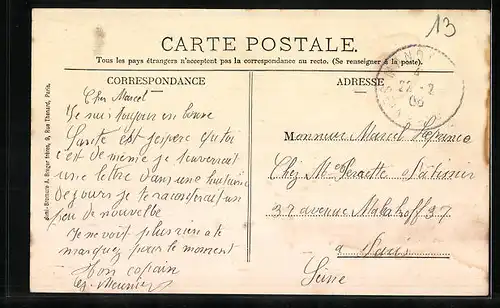 13
CARTE POSTALE.
Tous les pays étrangers n'acceptent pas la correspondance au recto. (Se renseigner à la poste).
CORRESPONDANCE
ADRESSE
22 - 2
06
Simi-Bromure A. Breger frères, 9, Rue Thénard, Paris.
Cher Marcel
Je suis toujour en bonne
Santé est jespere qu toi
c'est de même je tenverrait
une lettre dans une huitaine
de jours je te racontrait un
peu de nouvelle
Je ne voit plus rien a te
marquez pour le moment
Ton copain
Meunier
Monsieur Marcel
Chez Mr Perrette Pâtissier
37 avenue Malakoff 37
a Paris
Seine